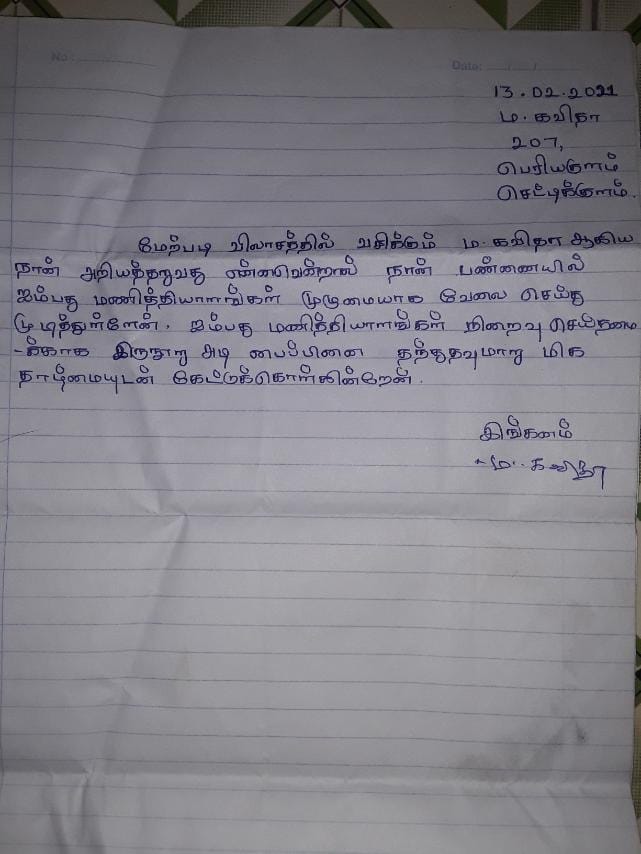 No :
Date: ...../...../.....
13.02.2021
ம. கவிதா
207,
பெரியகுளம்
செட்டிக்குளம்.
மேற்படி விலாசத்தில் வசிக்கும் ம. கவிதா ஆகிய
நான் அறியத்தருவது என்னவென்றால் நான் பண்ணையில்
ஐம்பது மணித்தியாளங்கள் முழுமையாக வேலை செய்து
முடித்துள்ளேன். ஐம்பது மணித்தியாளங்கள் நிறைவு செய்தமை
-க்காக இருநூறு அடி பைப்பினை தந்துதவுமாறு மிக
தாழ்மையுடன் கேட்டுக்கொள்கின்றேன்.
இங்கனம்
ம. கவிதா